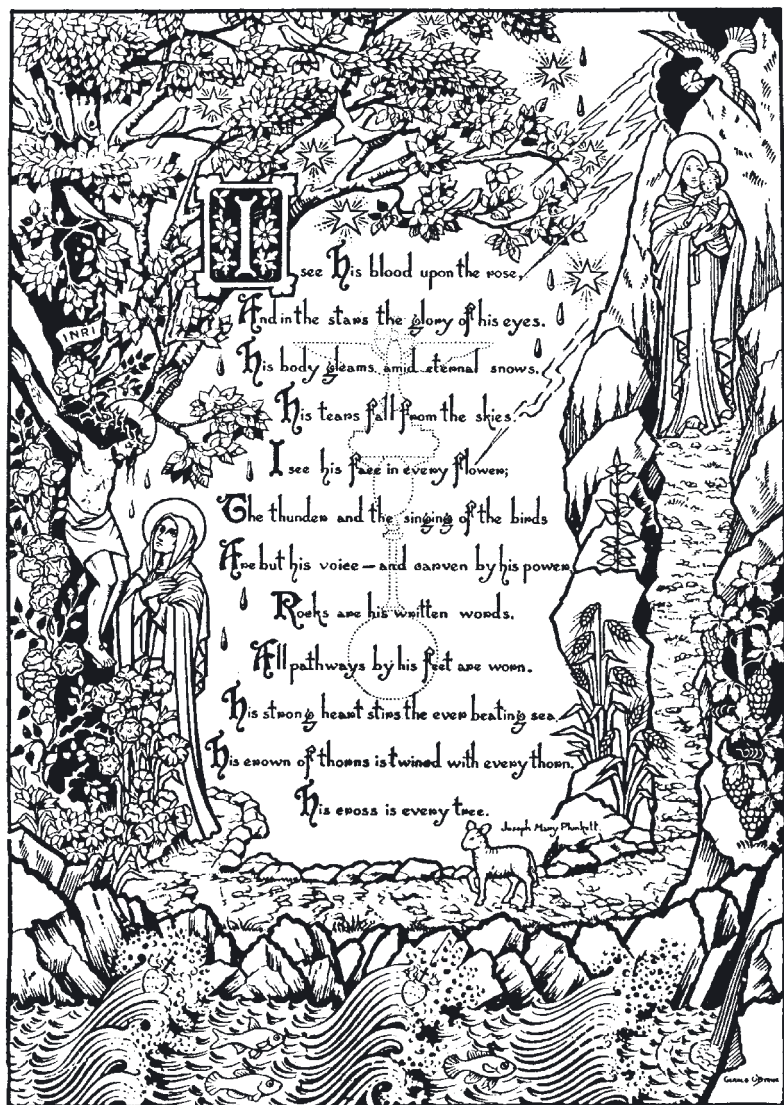 I see his blood upon the rose,
And in the stars the glory of his eyes.
His body gleams amid eternal snows,
His tears fall from the skies.
I see his face in every flower;
The thunder and the singing of the birds
Are but his voice — and carven by his power
Rocks are his written words.
All pathways by his feet are worn.
His strong heart stirs the ever beating sea.
His crown of thorns is twined with every thorn.
His cross is every tree.
Joseph Mary Plunkett.
INRI